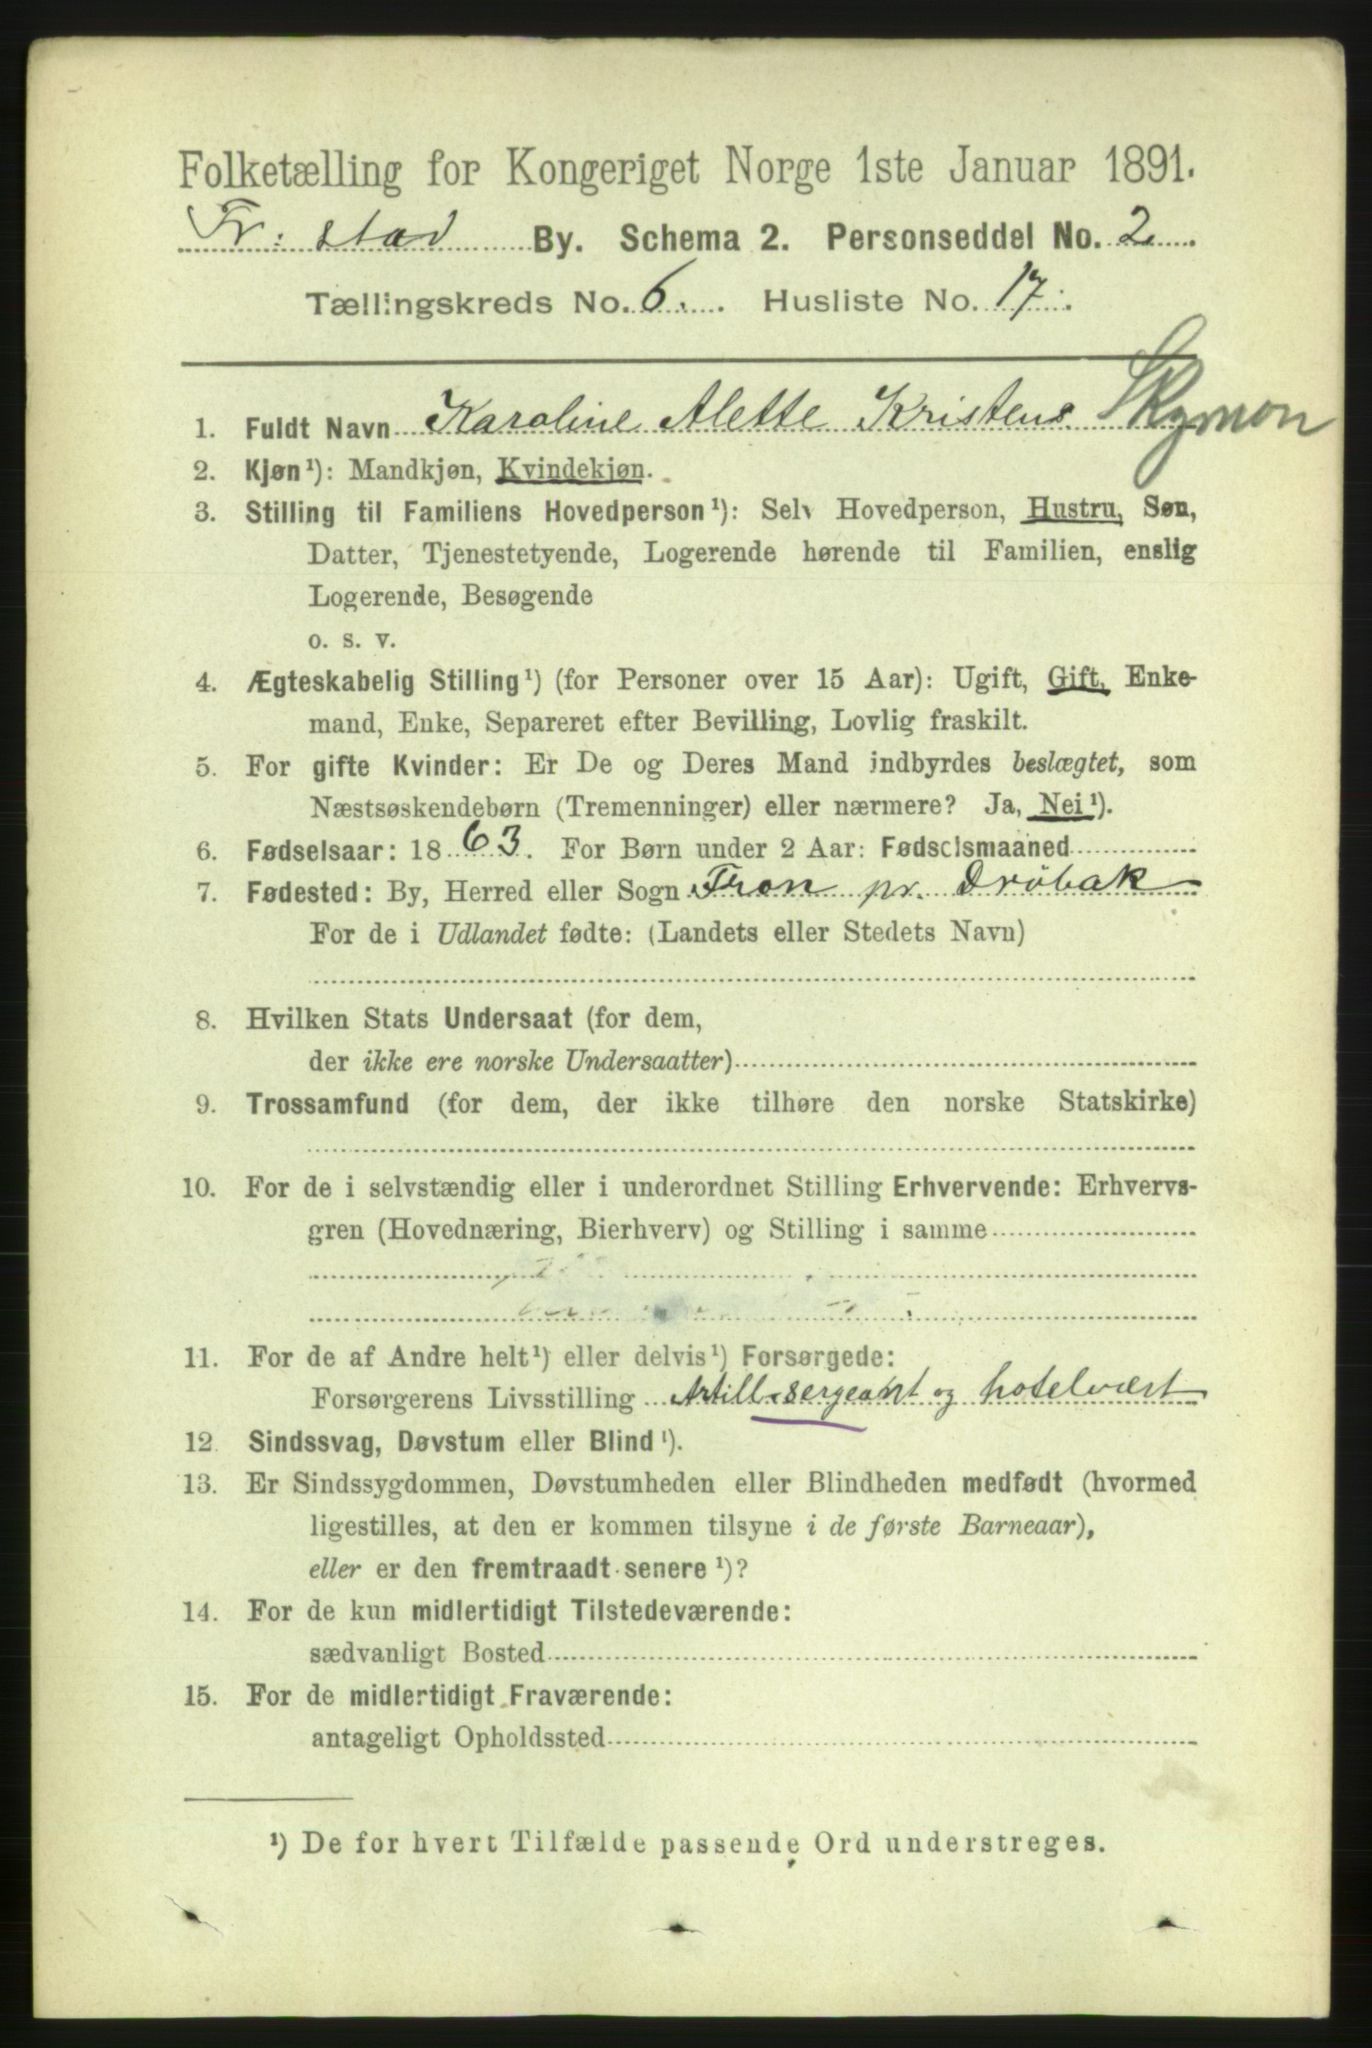 Folketælling for Kongeriget Norge 1ste Januar 1891.
Fr: stad By. Schema 2. Personseddel No. 2.
Tællingskreds No. 6. Husliste No. 17.
1. Fuldt Navn Karoline Alette Kristens. Skymon
2. Kjøn¹): Mandkjøn, Kvindekjøn.
3. Stilling til Familiens Hovedperson¹): Selv Hovedperson, Hustru, Søn,
Datter, Tjenestetyende, Logerende hørende til Familien, enslig
Logerende, Besøgende
o. s. v.
4. Ægteskabelig Stilling¹) (for Personer over 15 Aar): Ugift, Gift, Enke-
mand, Enke, Separeret efter Bevilling, Lovlig fraskilt.
5. For gifte Kvinder: Er De og Deres Mand indbyrdes beslægtet, som
Næstsøskendebørn (Tremenninger) eller nærmere? Ja, Nei¹).
6. Fødselsaar: 1863. For Børn under 2 Aar: Fødselsmaaned
7. Fødested: By, Herred eller Sogn Fron pr. Drøbak
For de i Udlandet fødte: (Landets eller Stedets Navn)
8. Hvilken Stats Undersaat (for dem,
der ikke ere norske Undersaatter)
9. Trossamfund (for dem, der ikke tilhøre den norske Statskirke)
10. For de i selvstændig eller i underordnet Stilling Erhvervende: Erhvervs-
gren (Hovednæring, Bierhverv) og Stilling i samme
11. For de af Andre helt¹) eller delvis¹) Forsørgede:
Forsørgerens Livsstilling Artill. sergeant og hotelvært
12. Sindssvag, Døvstum eller Blind¹).
13. Er Sindssygdommen, Døvstumheden eller Blindheden medfødt (hvormed
ligestilles, at den er kommen tilsyne i de første Barneaar),
eller er den fremtraadt senere¹)?
14. For de kun midlertidigt Tilstedeværende:
sædvanligt Bosted
15. For de midlertidigt Fraværende:
antageligt Opholdssted
¹) De for hvert Tilfælde passende Ord understreges.